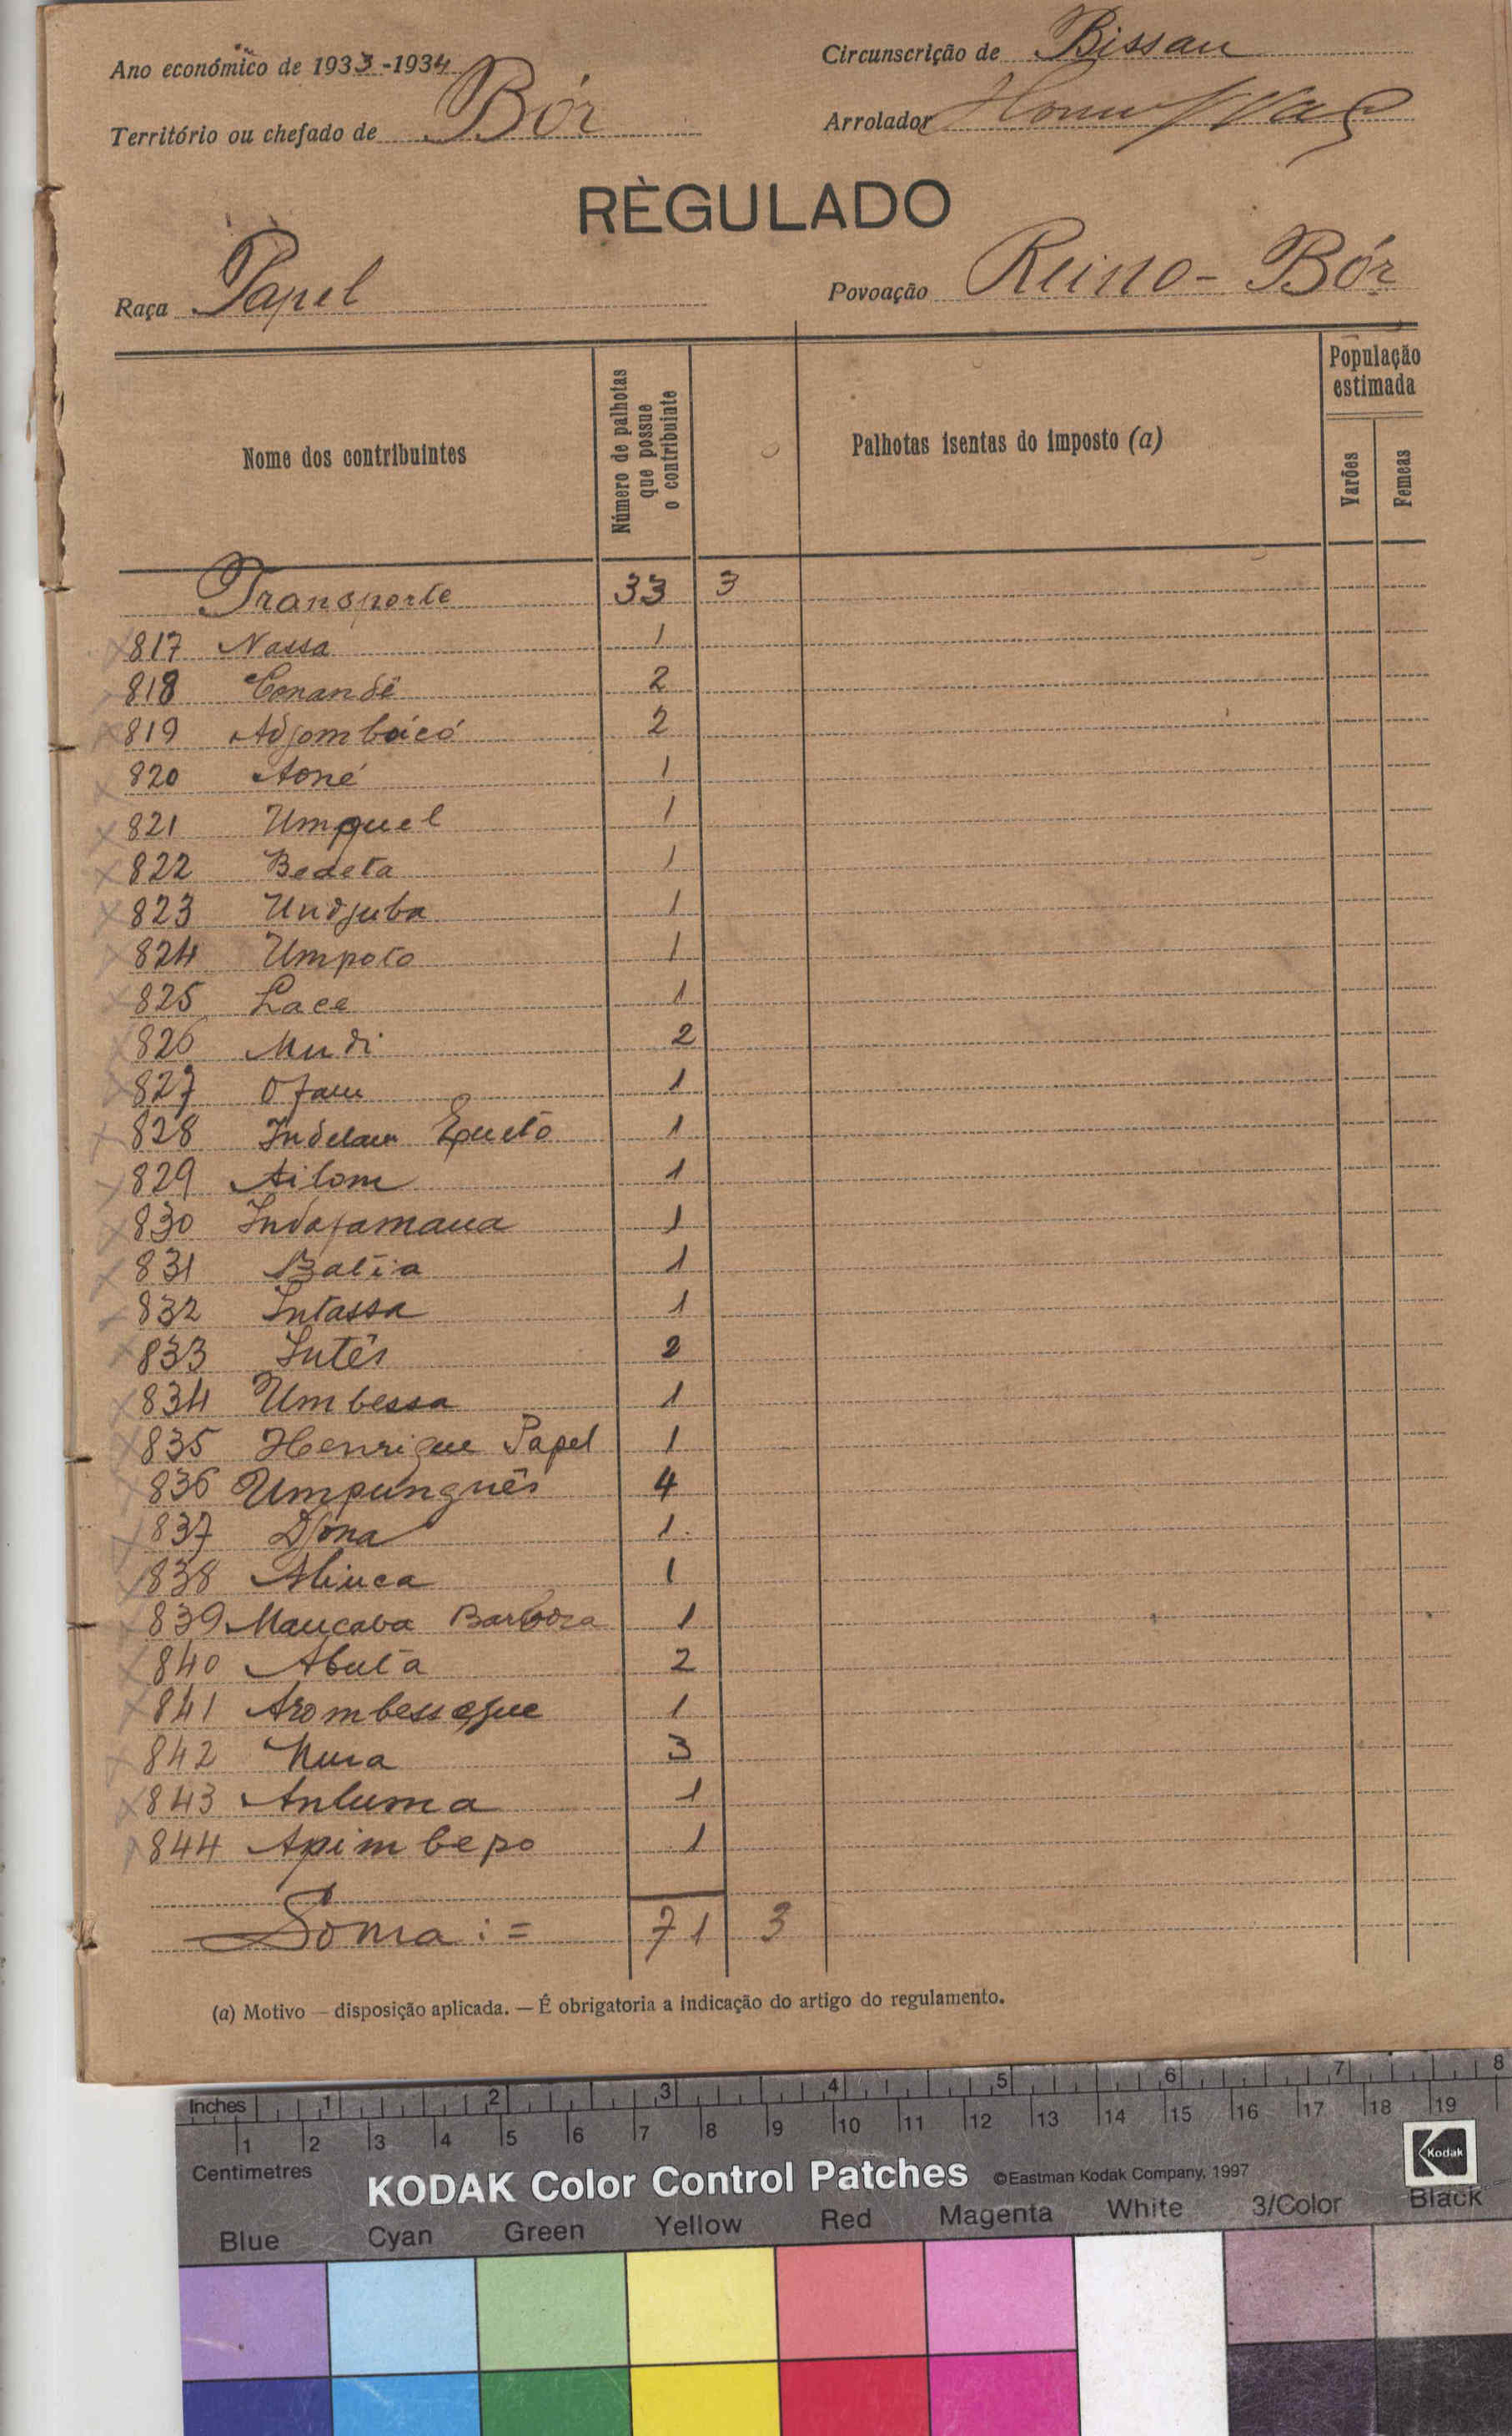 Ano económico de 1933-1934
Circunscrição de Bissau
Território ou chefado de Bór
Arrolador
RÈGULADO
Raça Papel
Povoação Reino-Bór
Nome dos contribuintes
Número de palhotas que possue o contribuinte
Palhotas isentas do imposto (a)
População estimada
Varões
Femeas
Transporte 33 3
817 Nassa 1
818 Conandê 2
819 Adjombáicó 2
820 Aoné 1
821 Umquel 1
822 Bedeta 1
823 Undjuba 1
824 Umpoto 1
825 Lace 1
826 Mudi 2
827 Ofau 1
828 Indelau 1
829 Ailom 1
830 Indafamaua 1
831 Batia 1
832 Intassa 1
833 Intês 2
834 Umbessa 1
835 Henrique Papel 1
836 Umpunguês 4
837 Djóna 1
838 Aliuca 1
839 Maucaba Barboza 1
840 Abutá 2
841 1
842 Nura 3
843 Antuma 1
844 Apimbepo 1
Soma:= 71 3
(a) Motivo — disposição aplicada. — É obrigatoria a indicação do artigo do regulamento.
Inches 1 2 3 4 5 6 7 8
1 2 3 4 5 6 7 8 9 10 11 12 13 14 15 16 17 18 19
Centimetres
KODAK Color Control Patches ©Eastman Kodak Company, 1997 Kodak
Blue Cyan Green Yellow Red Magenta White 3/Color Black